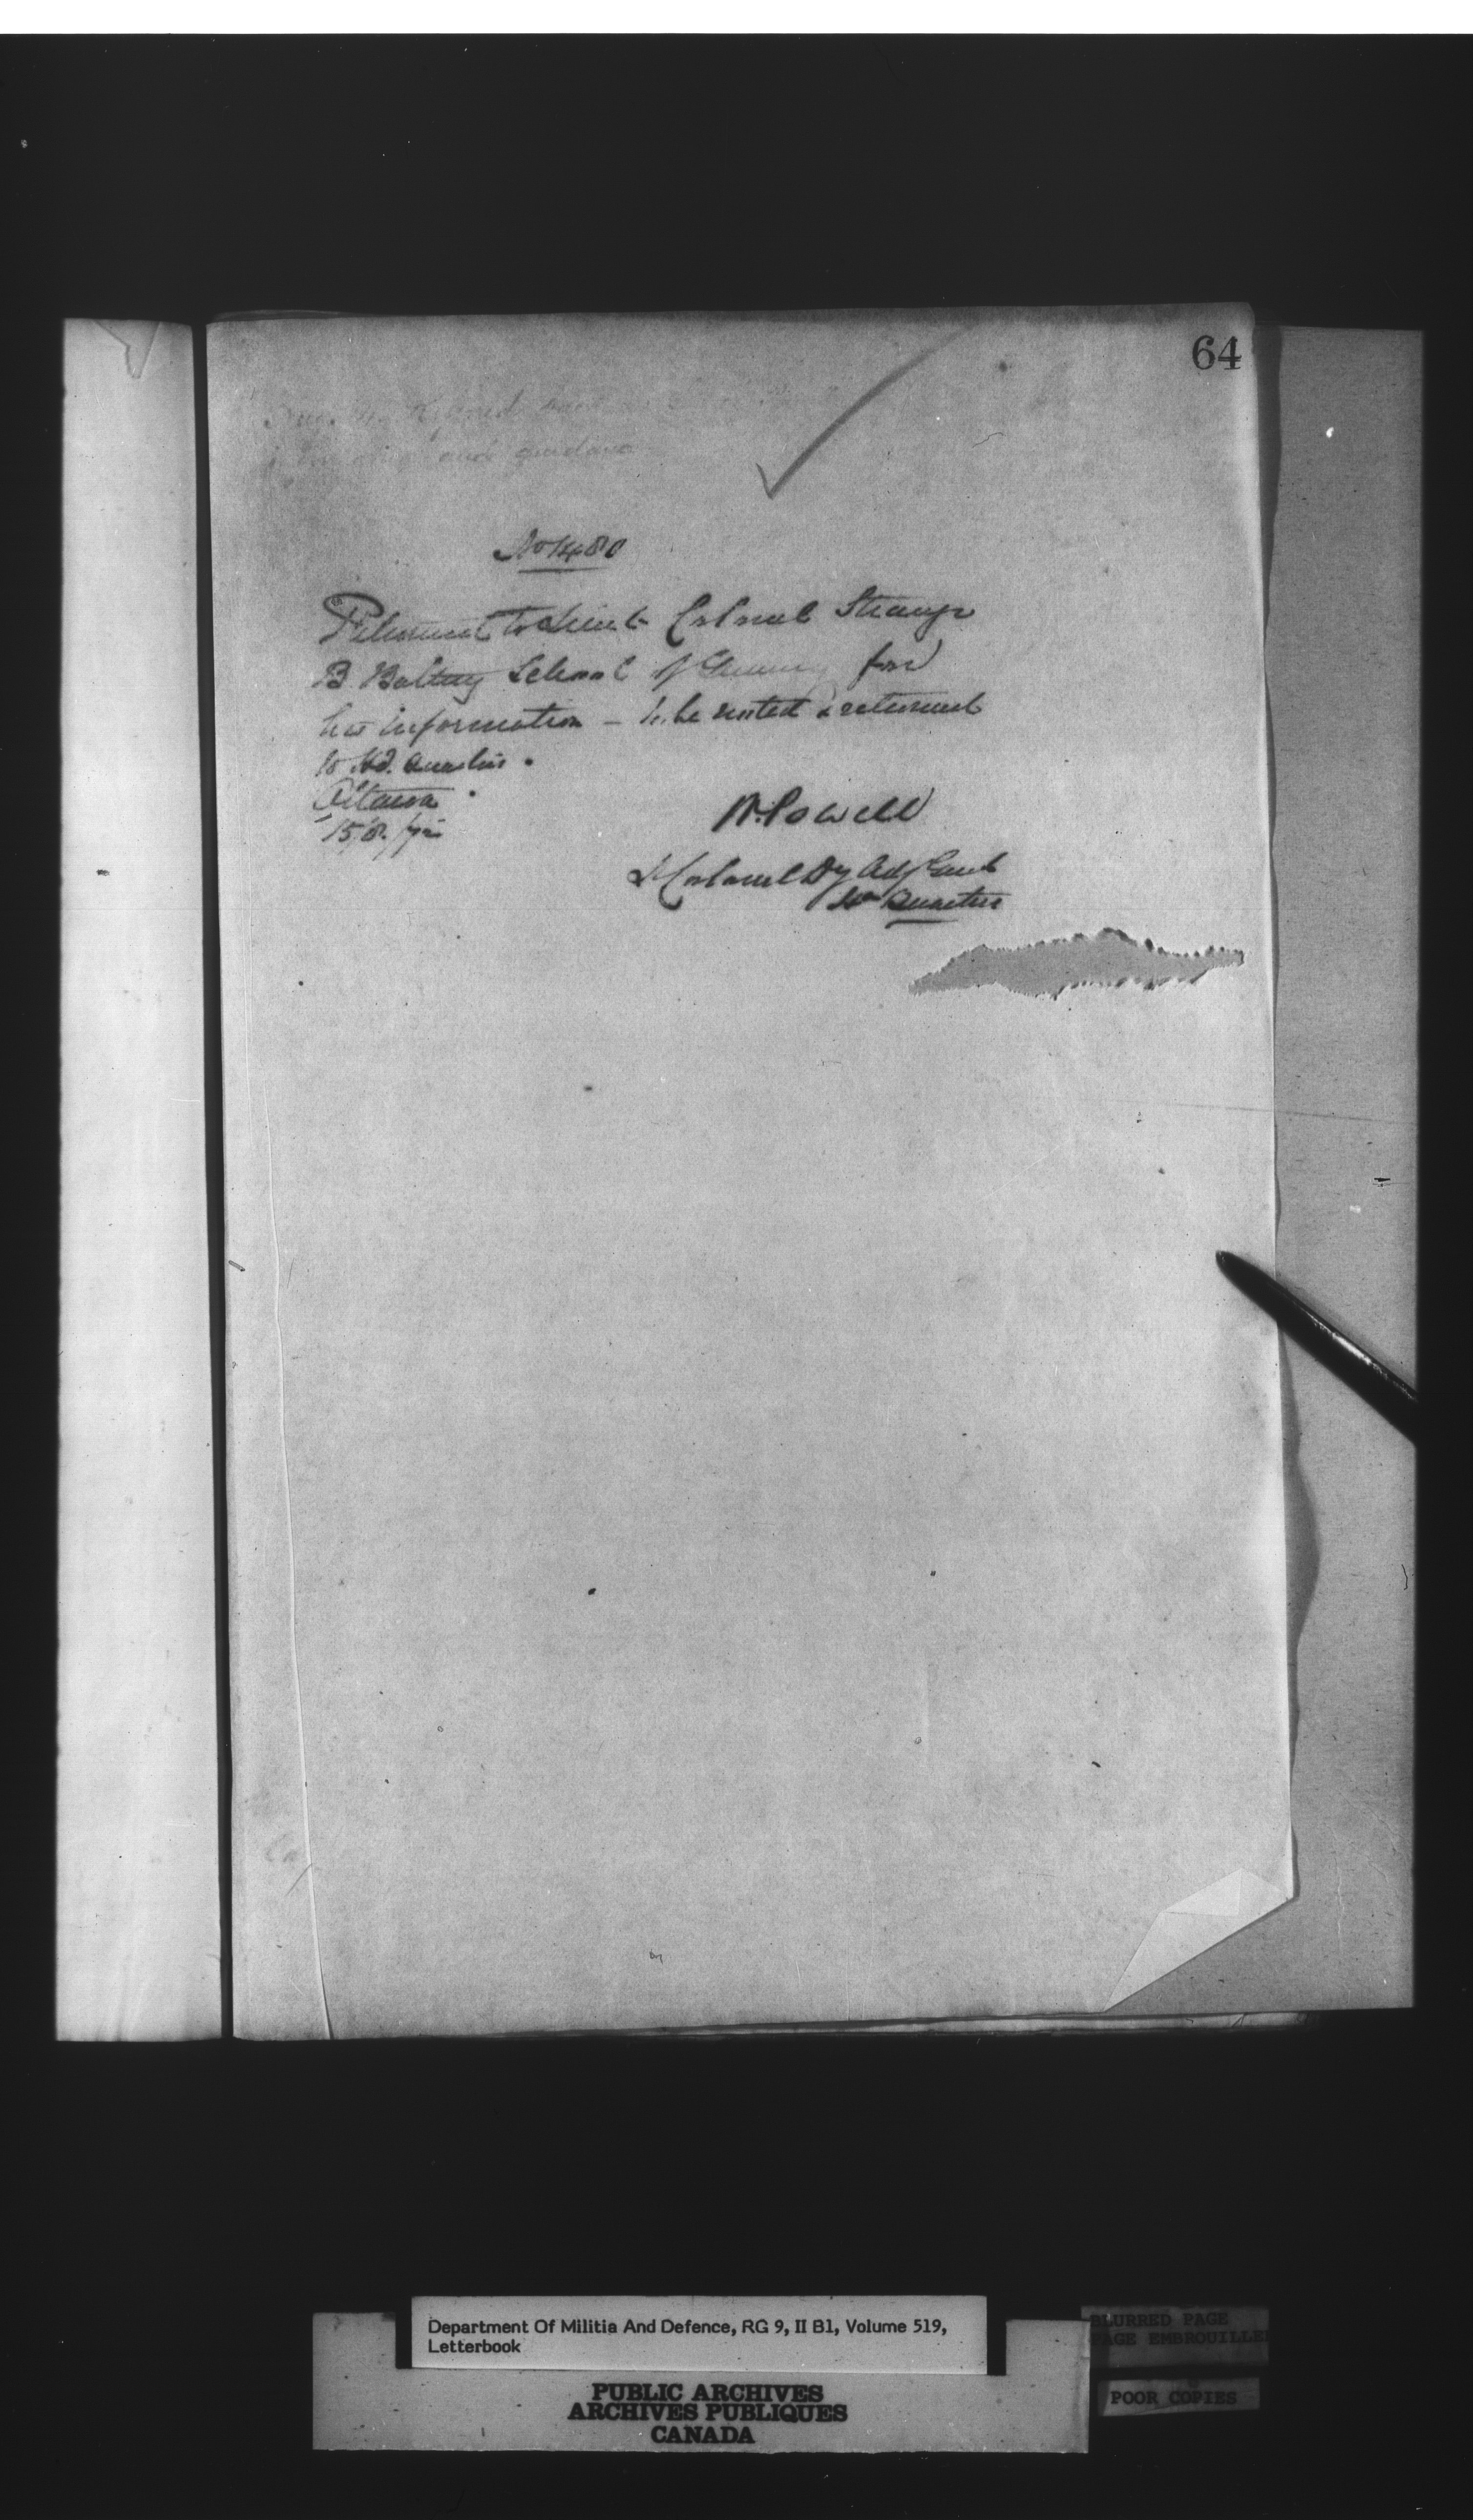 64
and guidance
No 1480
Returned to Lieut Colonel Strange
B Battery School of Gunnery for
his information – to be noted & returned
to Hd. Quarters.
Ottawa
15/8/72
W. Powell
Lt Colonel Dy Adjt Genl
Hd Quarters
Department Of Militia And Defence, RG 9, II B1, Volume 519,
Letterbook
PUBLIC ARCHIVES
ARCHIVES PUBLIQUES
CANADA
BLURRED PAGE
PAGE EMBROUILLE
POOR COPIES